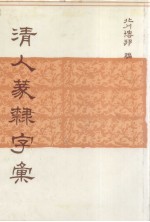 北川博邦 編
清人篆隸字彙